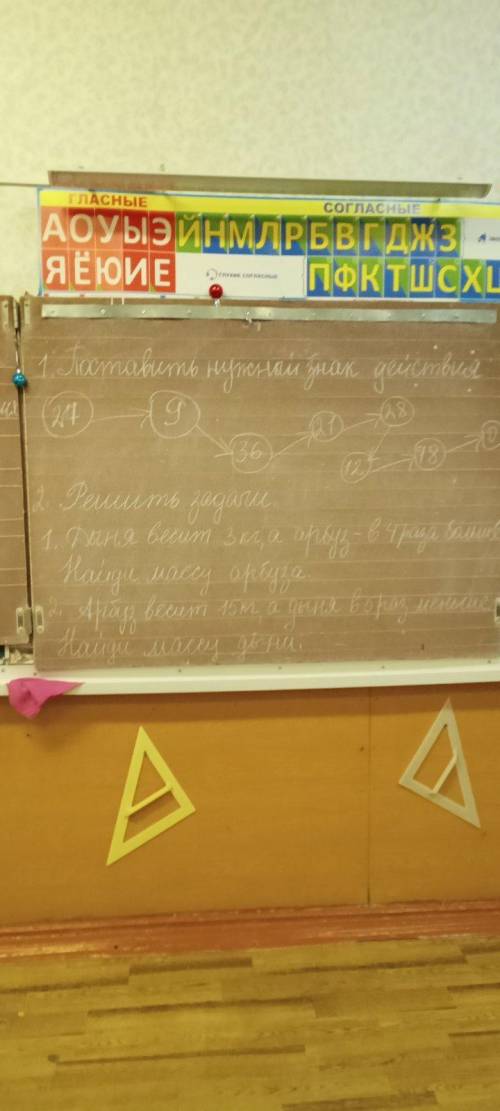 ГЛАСНЫЕ СОГЛАСНЫЕ
А О У Ы Э Й Н М Л Р Б В Г Д Ж З
Я Ё Ю И Е ГЛУХИЕ СОГЛАСНЫЕ П Ф К Т Ш С Х Ц
1. Поставить нужный знак действия
27 9 36 21 28 12 18
2. Решить задачи.
1. Дыня весит 3 кг, а арбуз - в 4 раза
Найди массу арбуза.
2. Арбуз весит 15 кг, а дыня в раз меньше.
Найди массу дыни.